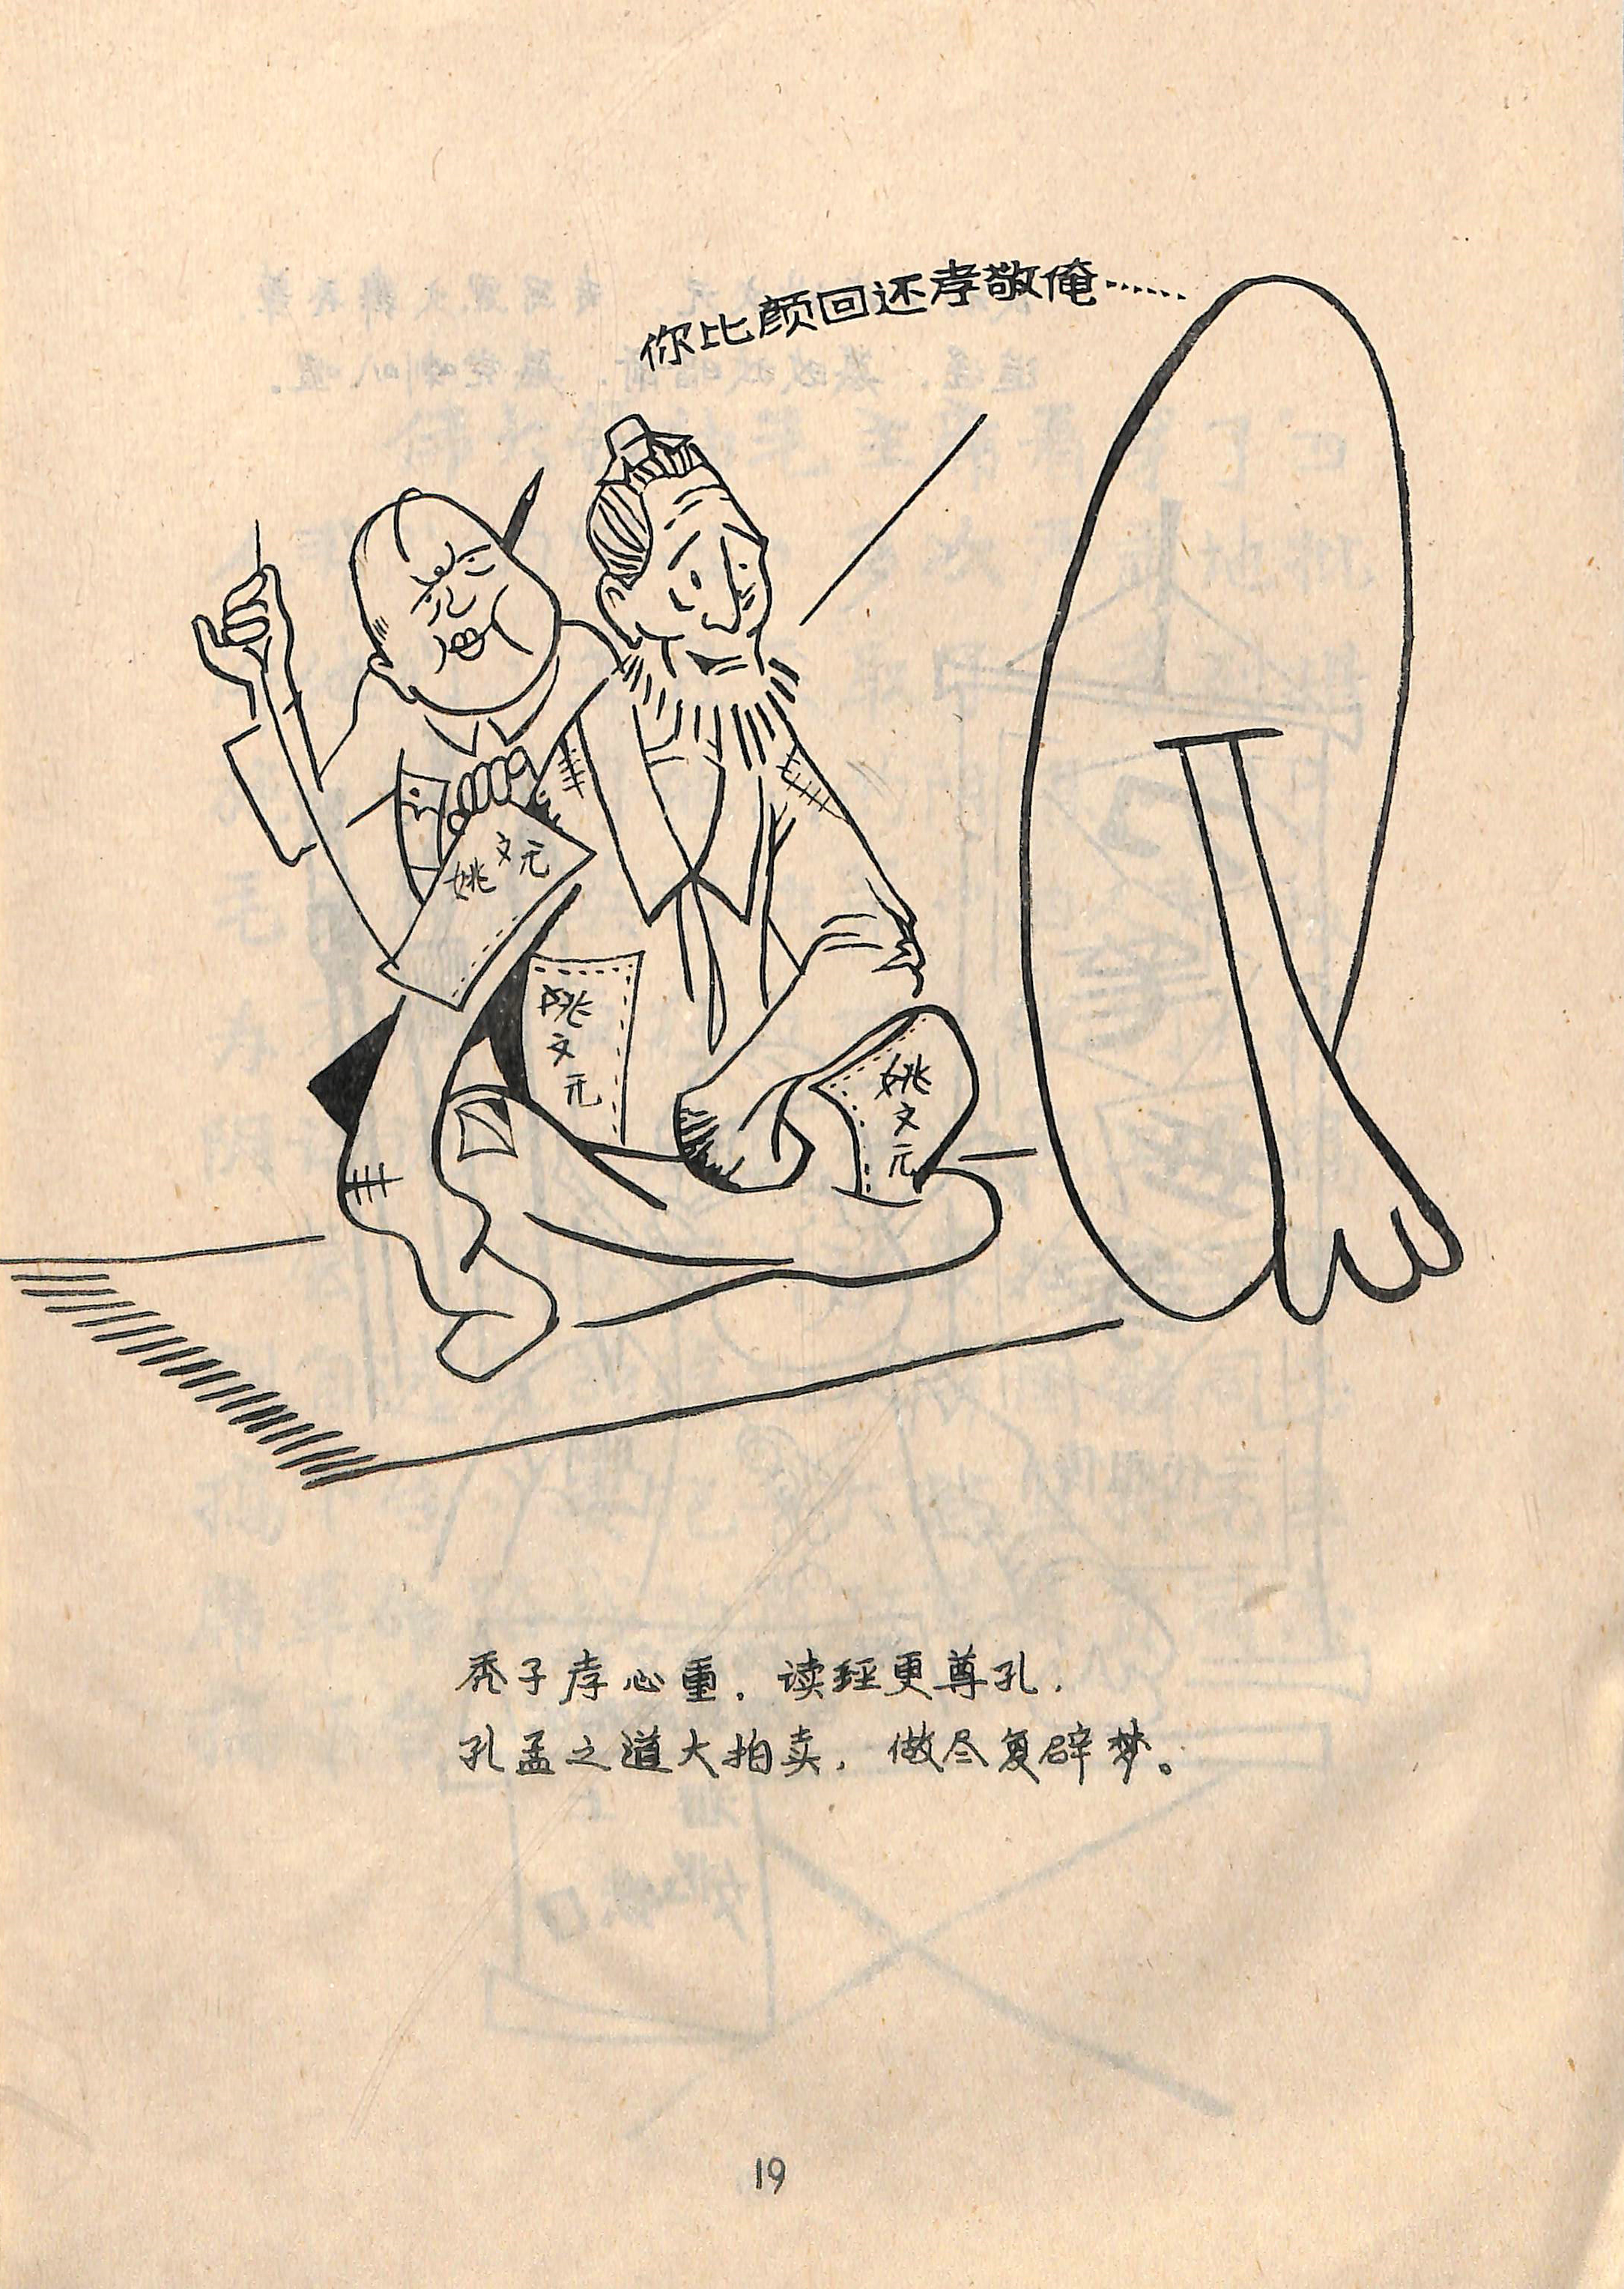 你比颜回还孝敬俺……
姚文元
姚文元
姚文元
秃子孝心重，读经更尊孔，
孔孟之道大拍卖，做尽复辟梦。
19